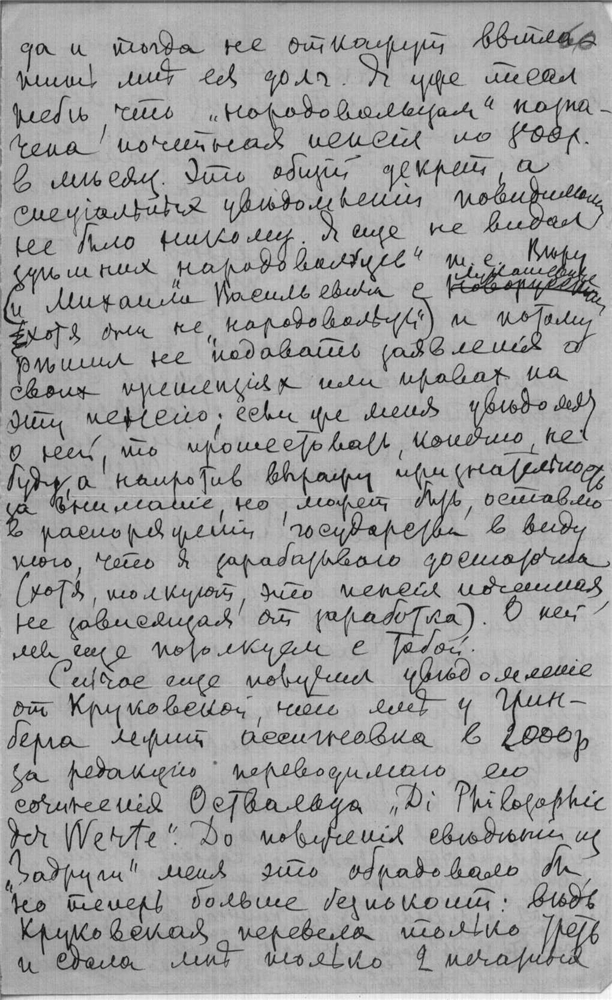 да и тогда не откажут
мнѣ ея долг. Я уже писал
тебѣ, что „народовольцам“ назна-
чена почетная пенсія по 800р.
в мѣсяц. Это общій декрет, а
спеціальных увѣдомленій повидимому
не было никому. Я еще не видал
„народовольцев“ т. е. Вѣру
и Михаила Васильевича с
(хотя они не „народовольцы“) и потому
рѣшил не подавать заявленія о
своих претензіях или правах на
эту пенсію; если уже меня увѣдомят
о ней, то протестовать, конечно, не
буду, а напротив выражу признательность
за вниманіе, но, может быть, оставлю
в распоряженіи государства в виду
того, что я зарабатываю достаточно
(хотя, толкуют, это пенсія почетная,
не зависящая от заработка). О ней
мы еще потолкуем с тобой.
Сейчас еще получил увѣдомленіе
от Круковской, что мнѣ у Грин-
берга лежит ассигновка в 2000р
за редакцію переводимаго ею
сочиненія Оствальда „Di Philosophie
der Werte“. До полученія свѣдѣній из
„Задруги“ меня это обрадовало бы,
но теперь больше безпокоит: вѣдь
Круковская перевела только треть
и сдала мнѣ только 2 печатных